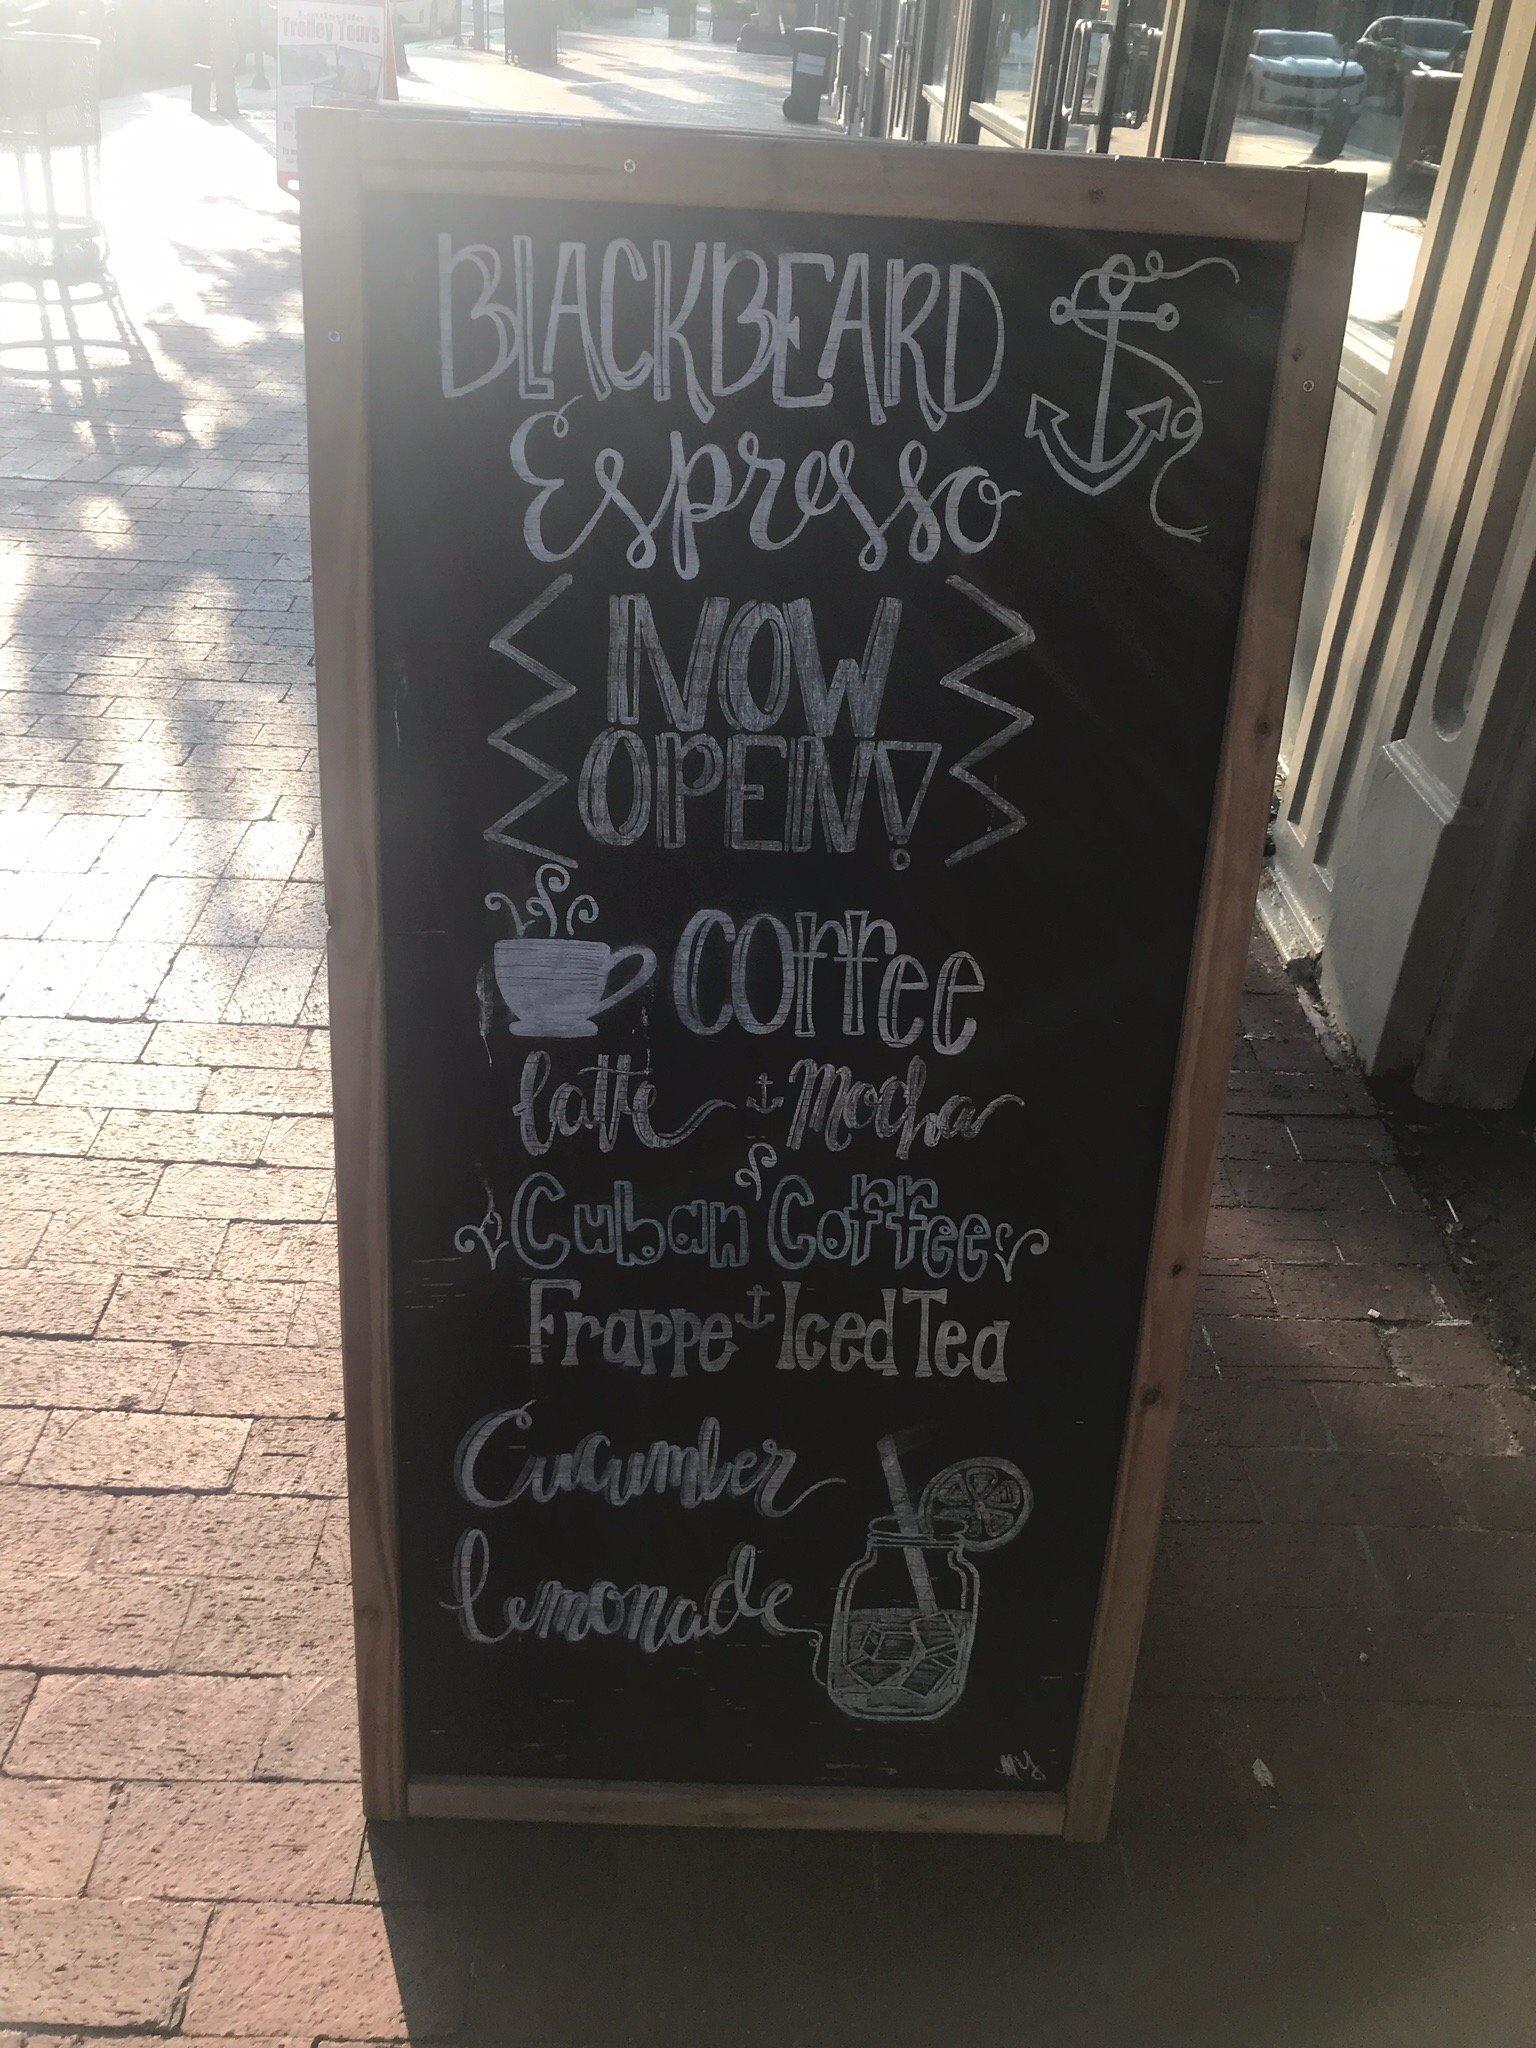 Louisville
Trolley Tours
BLACKBEARD
Espresso
NOW
OPEN!
Coffee
latte Mocha
Cuban Coffee
Frappe Iced Tea
Cucumber
lemonade
MY